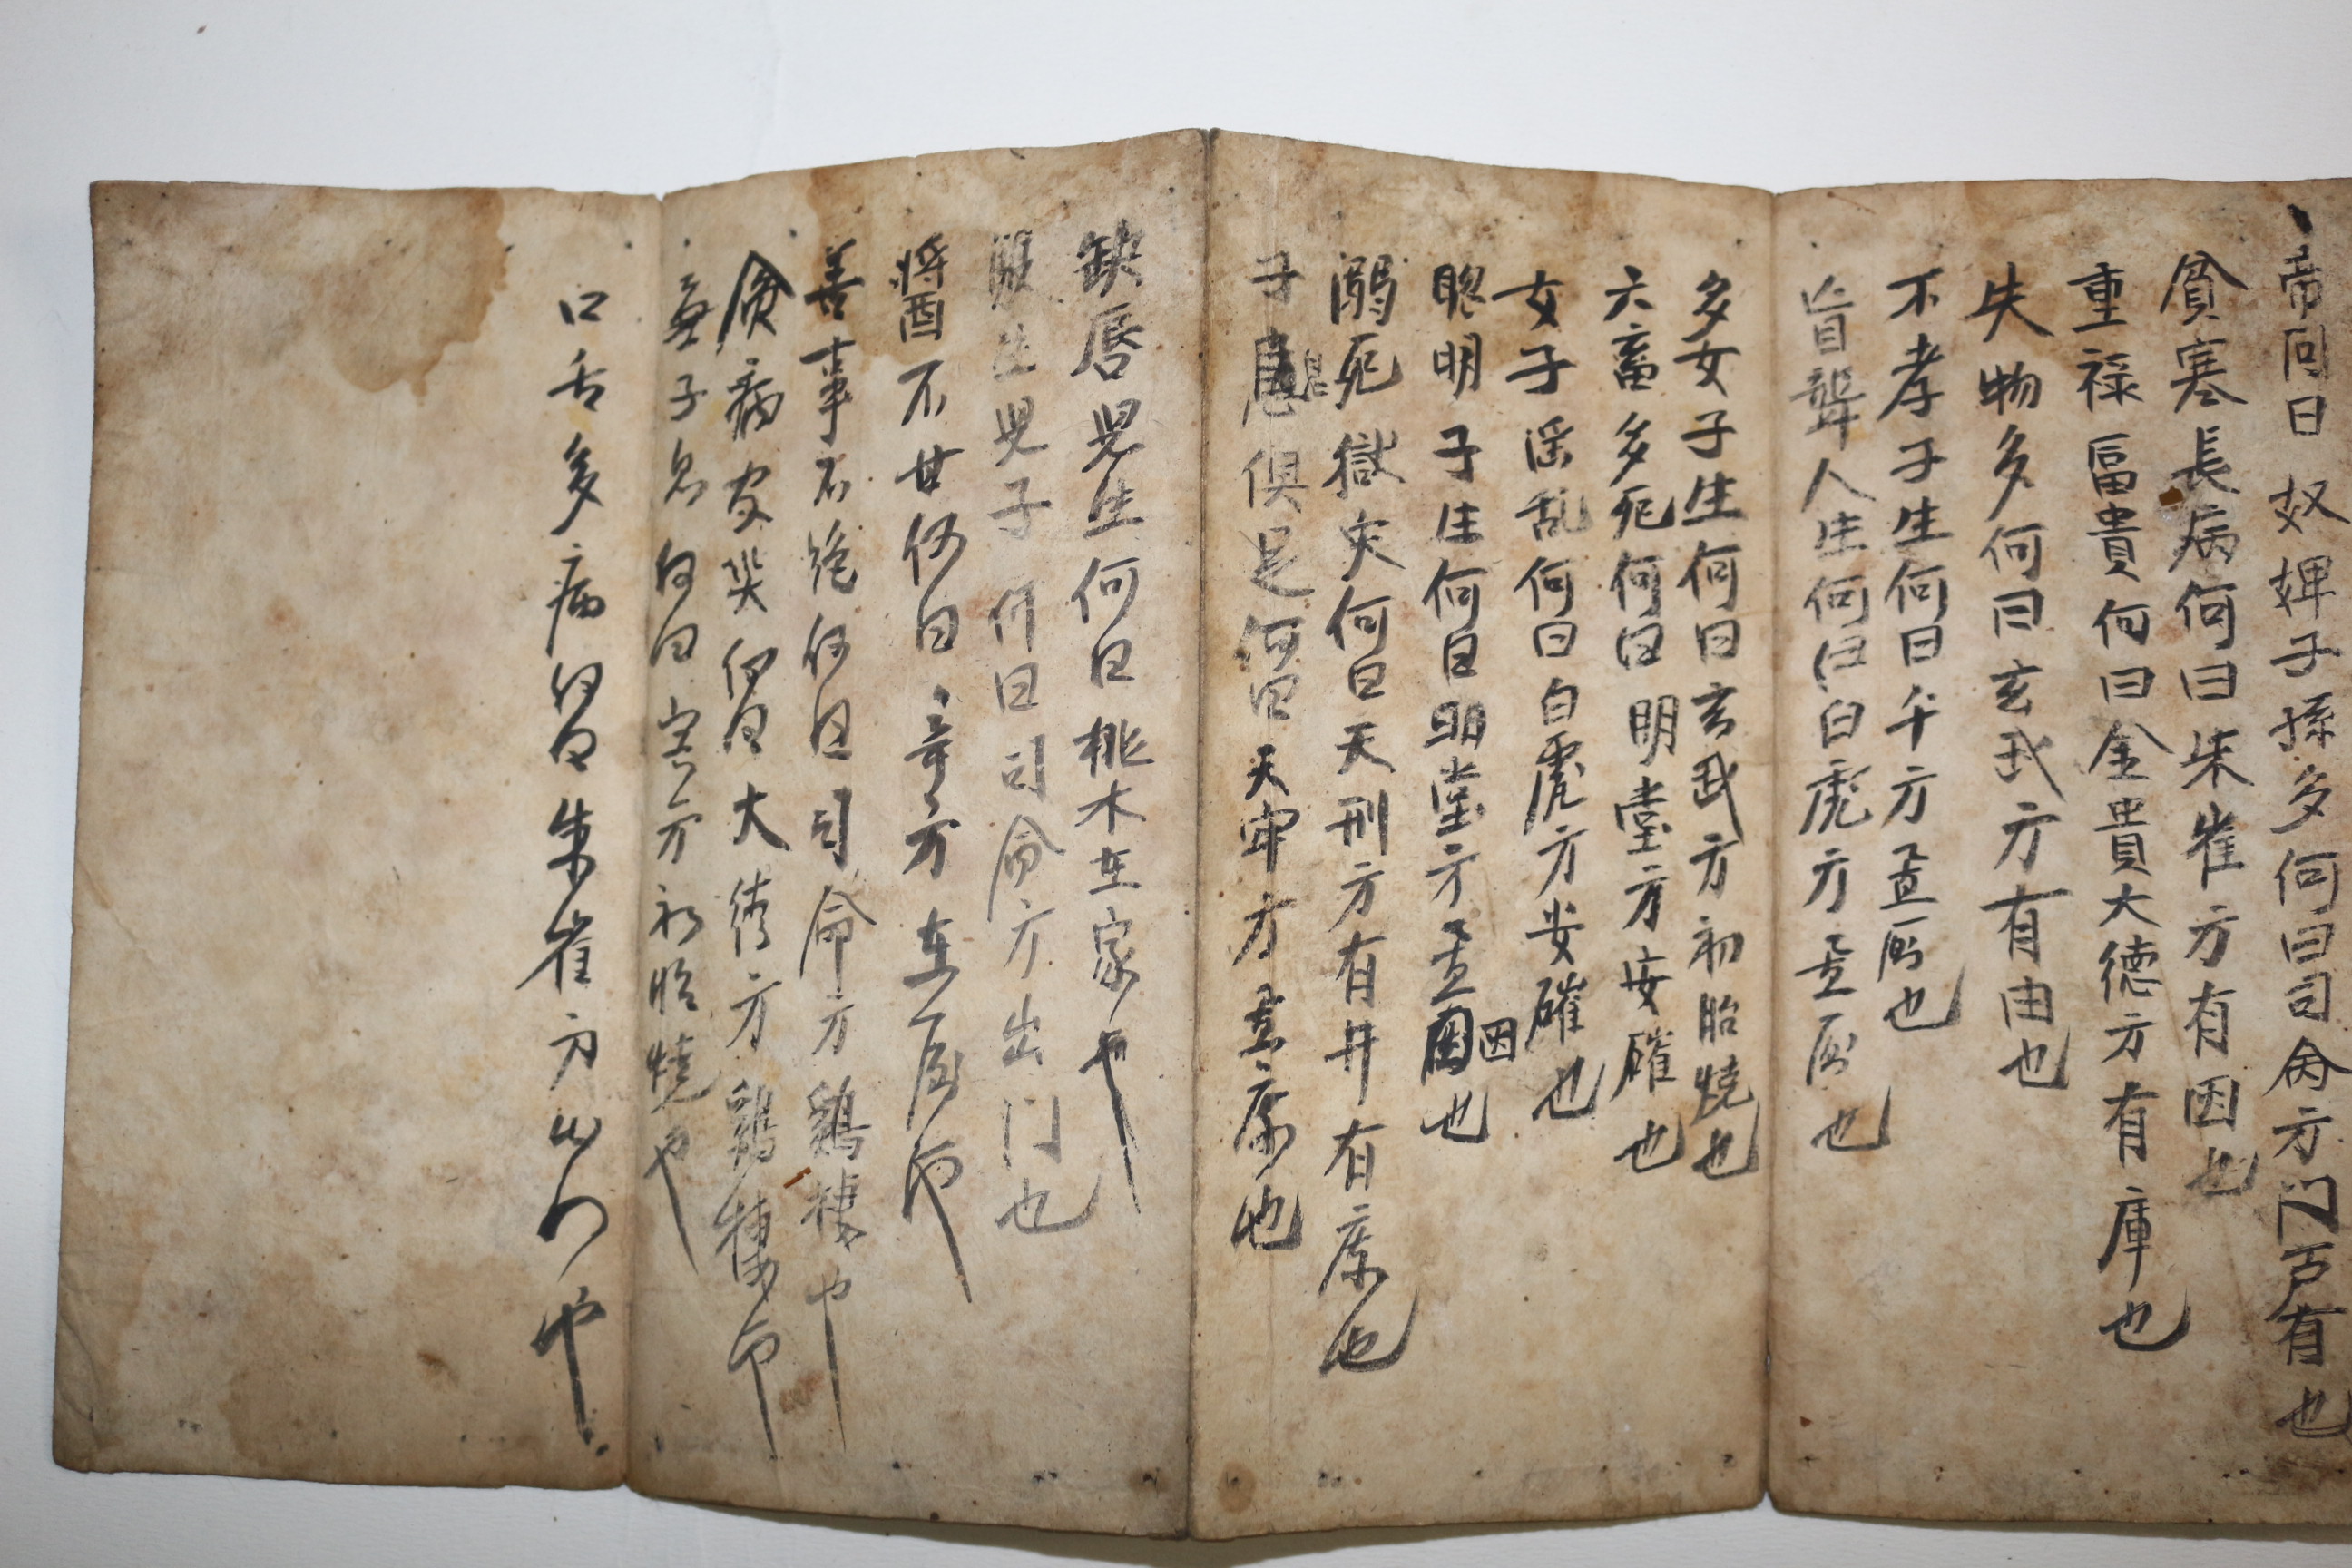 帝问曰奴婢子孫多何曰司命方门户有也
貧寒長病何曰朱雀方有因也
重禄富貴何曰金貴大德方有庫也
失物多何曰玄武方有由也
不孝子生何曰午方置也
盲聾人生何曰白虎方置也
多女子生何曰玄武方初胎燒也
六畜多死何曰明堂方安碓也
女子淫乱何曰白虎方安碓也
聰明子生何曰明堂方置因也
溺死獄灾何曰天刑方有井有庫也
子息俱足何曰天牢方庫也
缺唇児生何曰桃木在家也
生児子何曰司命方出门也
將酉不甘何曰方在也
善事不絶何曰司命方鷄棲也
病灾何曰大德方鷄棲也
無子息何曰方初胎燒也
口舌多病何曰朱雀方出门也